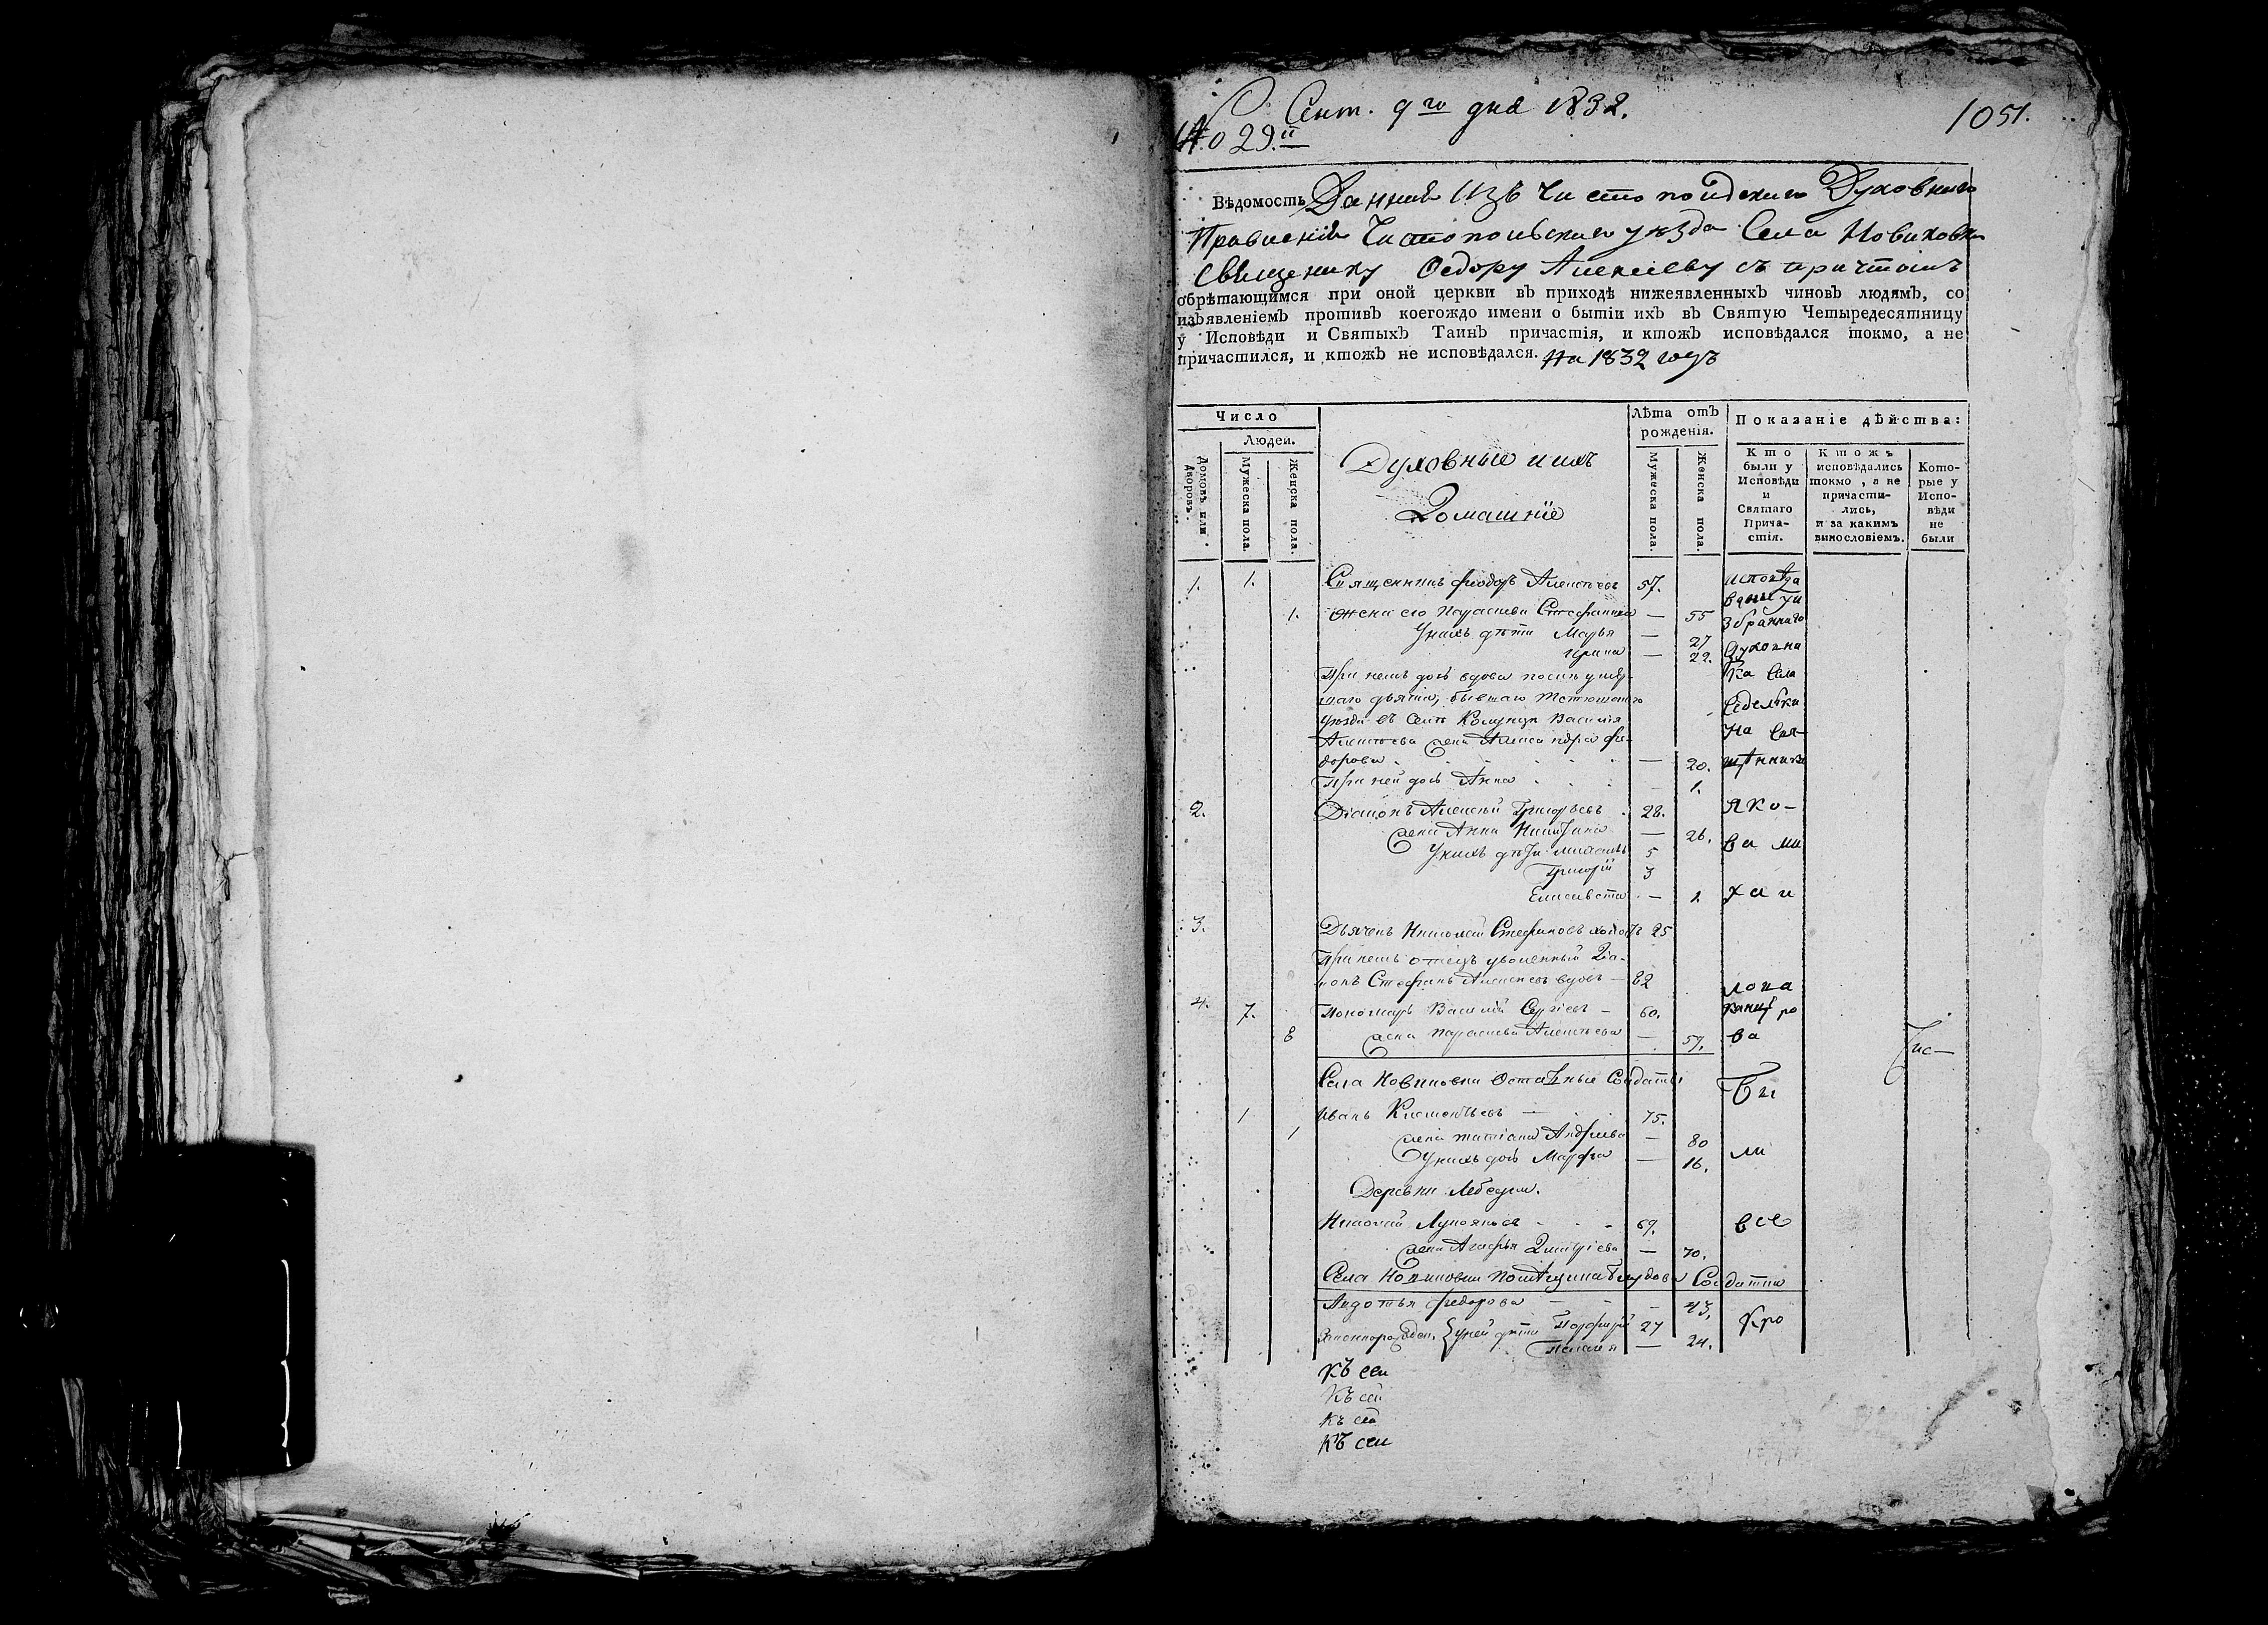 Сент. 9го дня 1832.
1051.
№ 29.й
Вѣдомость Данная изъ Чистопольскаго Духовнаго
Правленія Чистопольскаго уѣзда Села Новиковки
Священнику Федору Алексѣеву съ причтомъ
обрѣтающимся при оной церкви въ приходѣ нижеявленныхъ чиновъ людямъ, со
изъявленіемъ противъ коегождо имени о бытіи ихъ въ Святую Четыредесятницу
у Исповѣди и Святыхъ Таинъ причастія, и ктожъ исповѣдался токмо, а не
причастился, и ктожъ не исповѣдался. На 1832 годъ
Число
Людей.
Домовъ или дворовъ.
Мужеска пола.
Женска пола.
Духовные и ихъ
Домашніе
Лѣта отъ
рожденія.
Мужеска пола.
Женска пола.
Показаніе дѣйства:
Кто
были у
Исповѣди
и
Святаго
Прича-
стія.
Ктожъ
исповѣдались
токмо, а не
причасти-
лись,
и за какимъ
винословіемъ.
Кото-
рые у
Испо-
вѣди
не
были
1. 1. Священникъ Феодоръ Алексѣевъ 57. исповѣда
1. Жена его Параскева Стефанова — 55 збраннаго
У нихъ дѣти Марья — 27
Ирина — 22. духовни
При немъ дочь вдова послѣ умер- ка села
шаго дьячка, бывшаго Тетюшскаго
Уѣзда въ селѣ Василія на свя-
Алексѣева жена Александра Фе-
дорова — 20. щѣнника
При ней дочь Анна 1.
2. Діаконъ Алексѣй Григорьевъ 28. Яко-
жена Анна Никитина — 26. ва ми
У нихъ дѣти Михаилъ 5
Григорій 3
Елисавета — 1. хаи
3. Дьячекъ Николай Стефановъ холостъ 25
При немъ отецъ уволенный Діа-
конъ Стефанъ Алексѣевъ вдовъ — 82 лова
4. 7. Пономарь Василій Сергіевъ — 60.
8 жена Параскева Алексѣева — 59. ва
Села Новиковки Отставные Солдаты Бы
1 Иванъ Климентьевъ — 75.
1 жена Татіана Андреева — 80 ли
У нихъ дочь Марфа — 16.
Деревни Лебедки.
Николай Лукояновъ 69. все
жена Агафья Дмитріева — 70.
Села Новиковки Солдатка
Авдотья Федорова — 43, Кро
у ней дѣти Порфирій 27
Пелагія — 24.
Къ сей
Къ сей
Къ сей
Къ сей